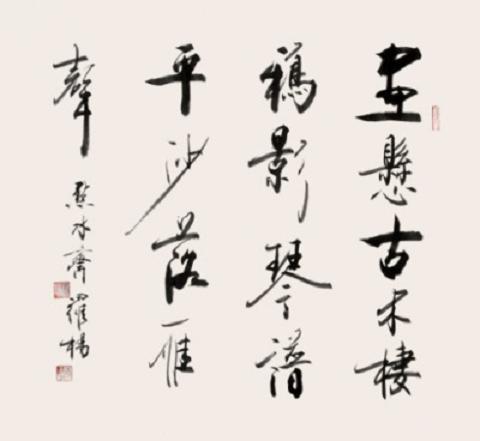 畫懸古木棲
鴉影琴譜
平沙落雁
聲 點水齋 羅楊